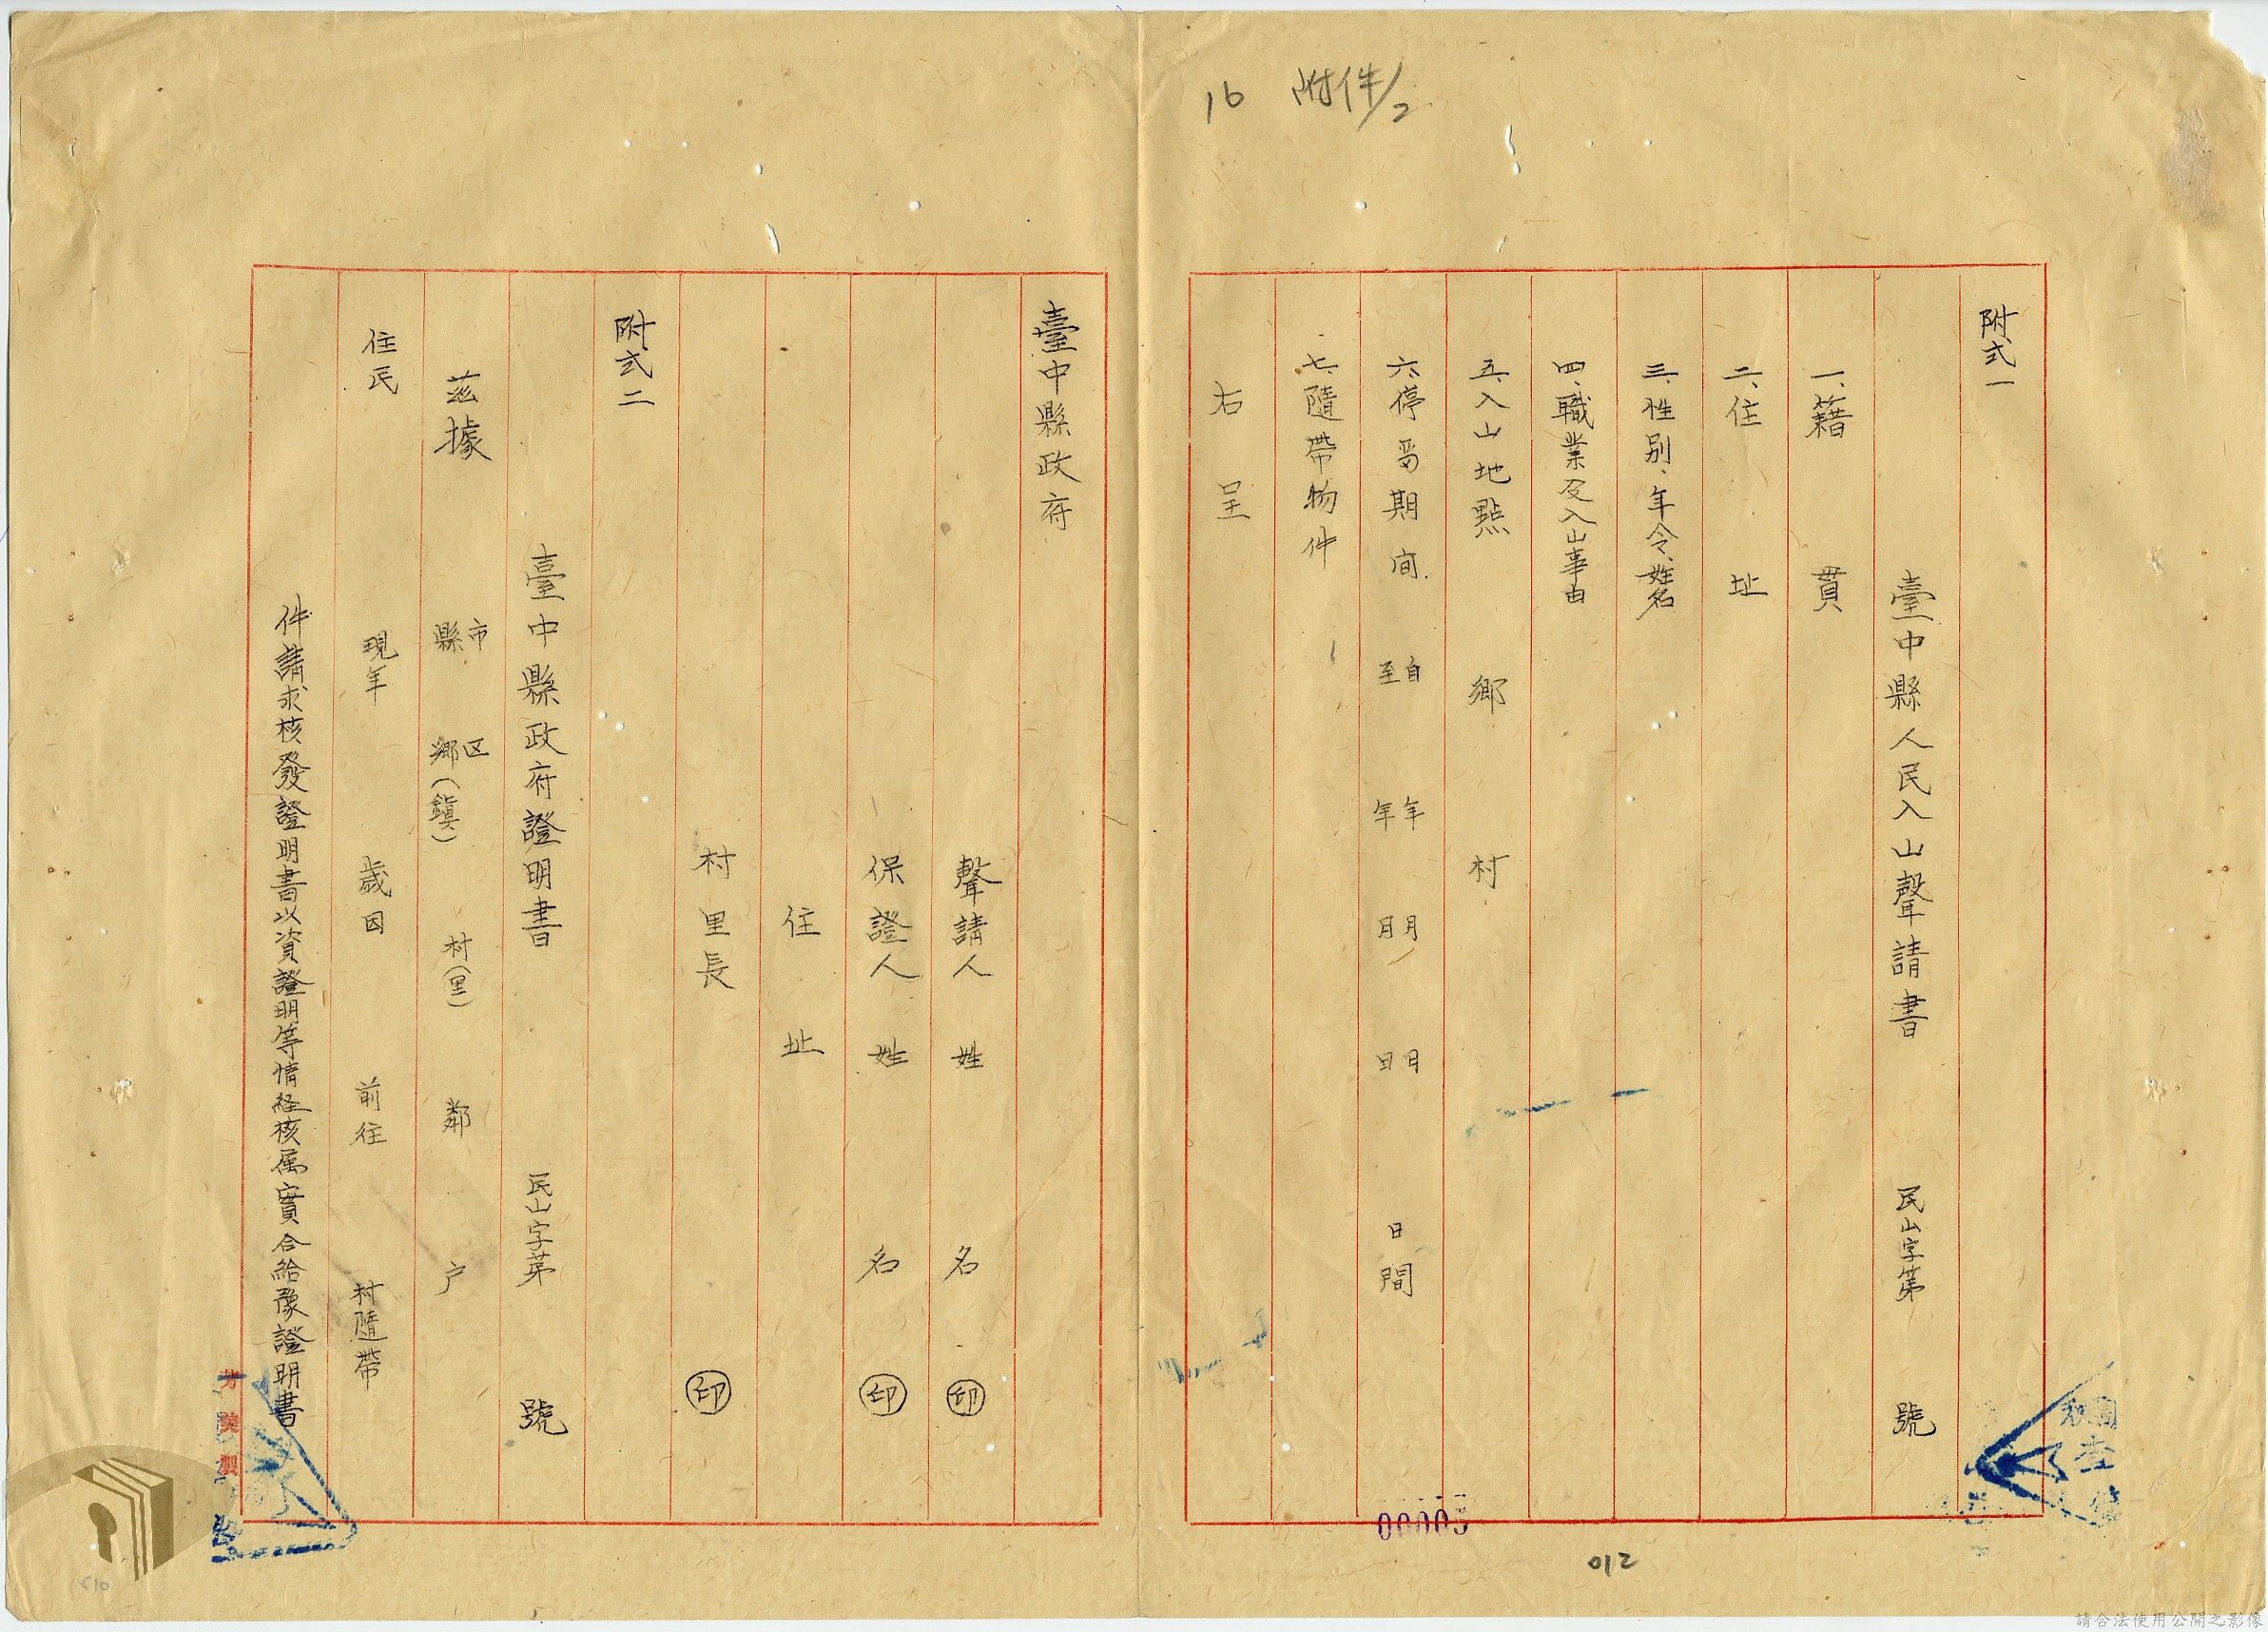 16 附件/2
附式一
臺中縣人民入山聲請書 民山字第 號
一、籍 貫
二、住 址
三、性別、年令、姓名
四、職業及入山事由
五、入山地點 鄉 村
六、停畱期间 自 年 月 日
至 年 月 日 日間
七、隨帶物件
右 呈
臺中縣政府
聲請人 姓 名 印
保證人 姓 名 印
住 址
村里長 印
附式二
臺中縣政府證明書 民山字第 號
茲據 市縣 区鄉(鎮) 村(里) 鄰 户
住民 現年 歲因 前往 村隨帶
件請求核發證明書以資證明等情経核属實合給豫證明書
00003
012
請合法使用公開之影像